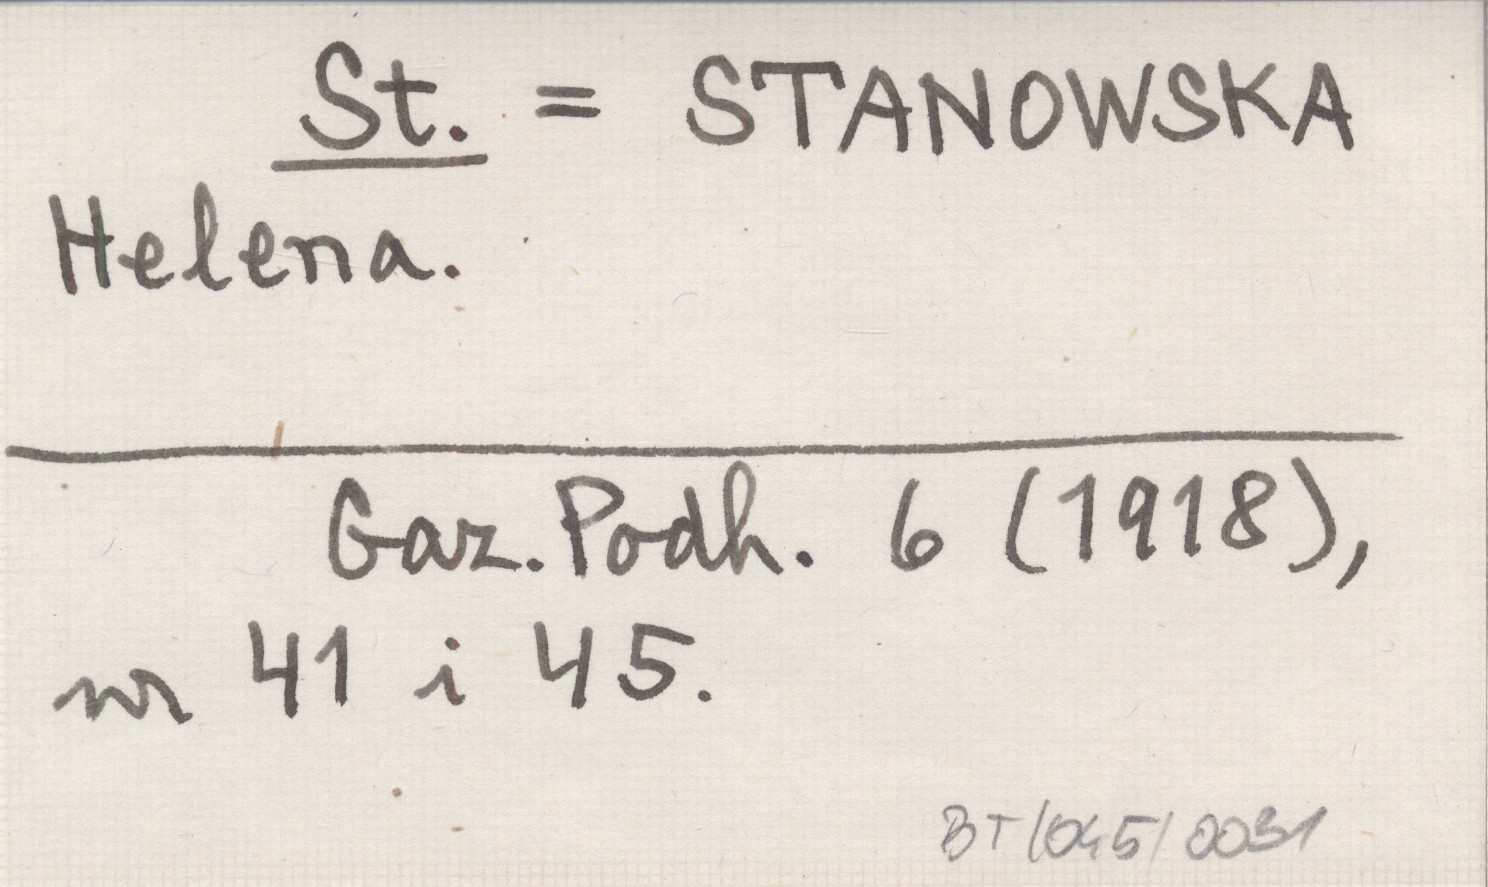 St. = STANOWSKA
Helena.
Gaz. Podh. 6 (1918),
nr 41 i 45.
BT/045/0031